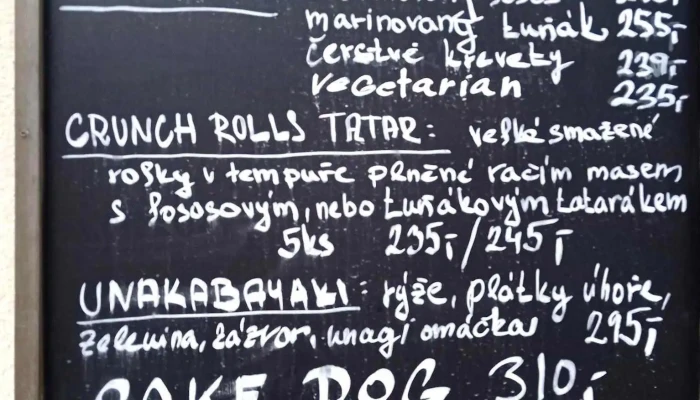 marinovaný tuňák 255,-
čerstvé krevety 239,-
vegetarian 235,-
CRUNCH ROLLS TATAR: velké smažené
rolky v tempuře plněné račím masem
s lososovým, nebo tuňákovým tatarákem
5ks 235,-/245,-
UNAKABAYAKI: rýže, plátky úhoře,
zelenina, zázvor, unagi omáčka 295,-
CAKE DOG 310,-